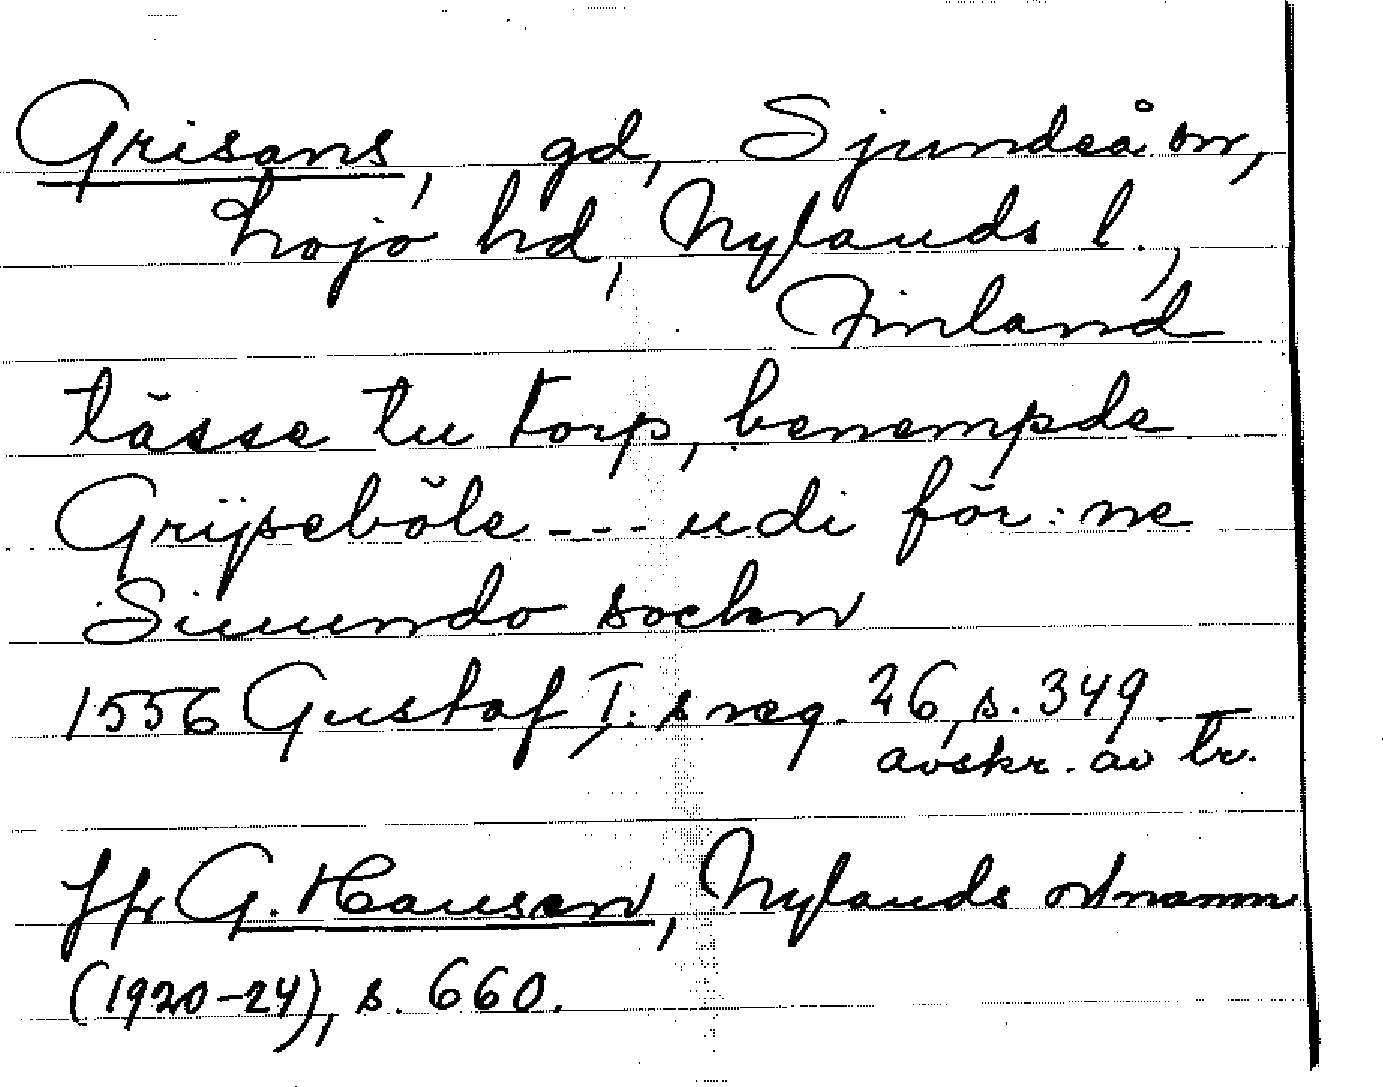 Grisans, gd, Sjundeå sn,
Lojo hd, Nylands l.,
Finland
tässe tu torp, benempde
Grijseböle --- udi för:ne
Siuundo sockn
1556 Gustaf I:s reg. 26, s. 349
avskr. av tr.
Jfr G. Hausen, Nylands ortnamn
(1920-24), s. 660.